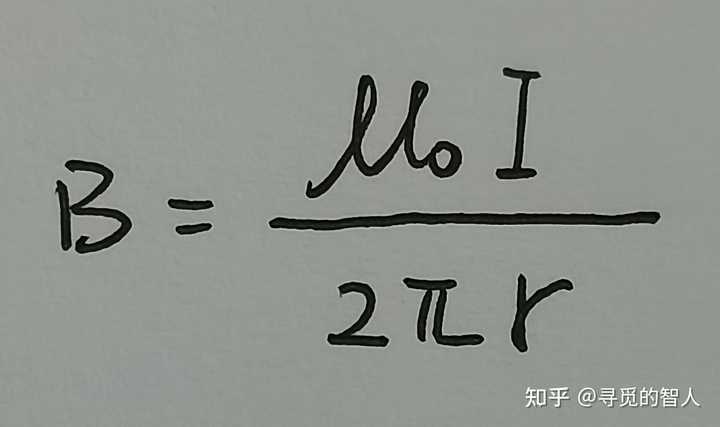 B = μ₀I / 2πr
知乎 @寻觅的智人